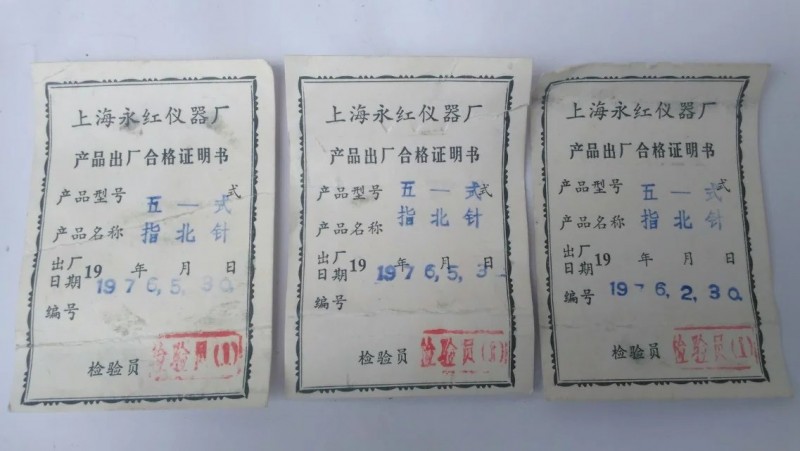 上海永红仪器厂
产品出厂合格证明书
产品型号 五一式 式
产品名称 指北针
出厂日期 19 年 月 日
1976,5,30
编号
检验员 检验员(1)
上海永红仪器厂
产品出厂合格证明书
产品型号 五一式 式
产品名称 指北针
出厂日期 19 年 月 日
1976,5,3
编号
检验员 检验员
上海永红仪器厂
产品出厂合格证明书
产品型号 五一式 式
产品名称 指北针
出厂日期 19 年 月 日
1976,2,30
编号
检验员 检验员(1)